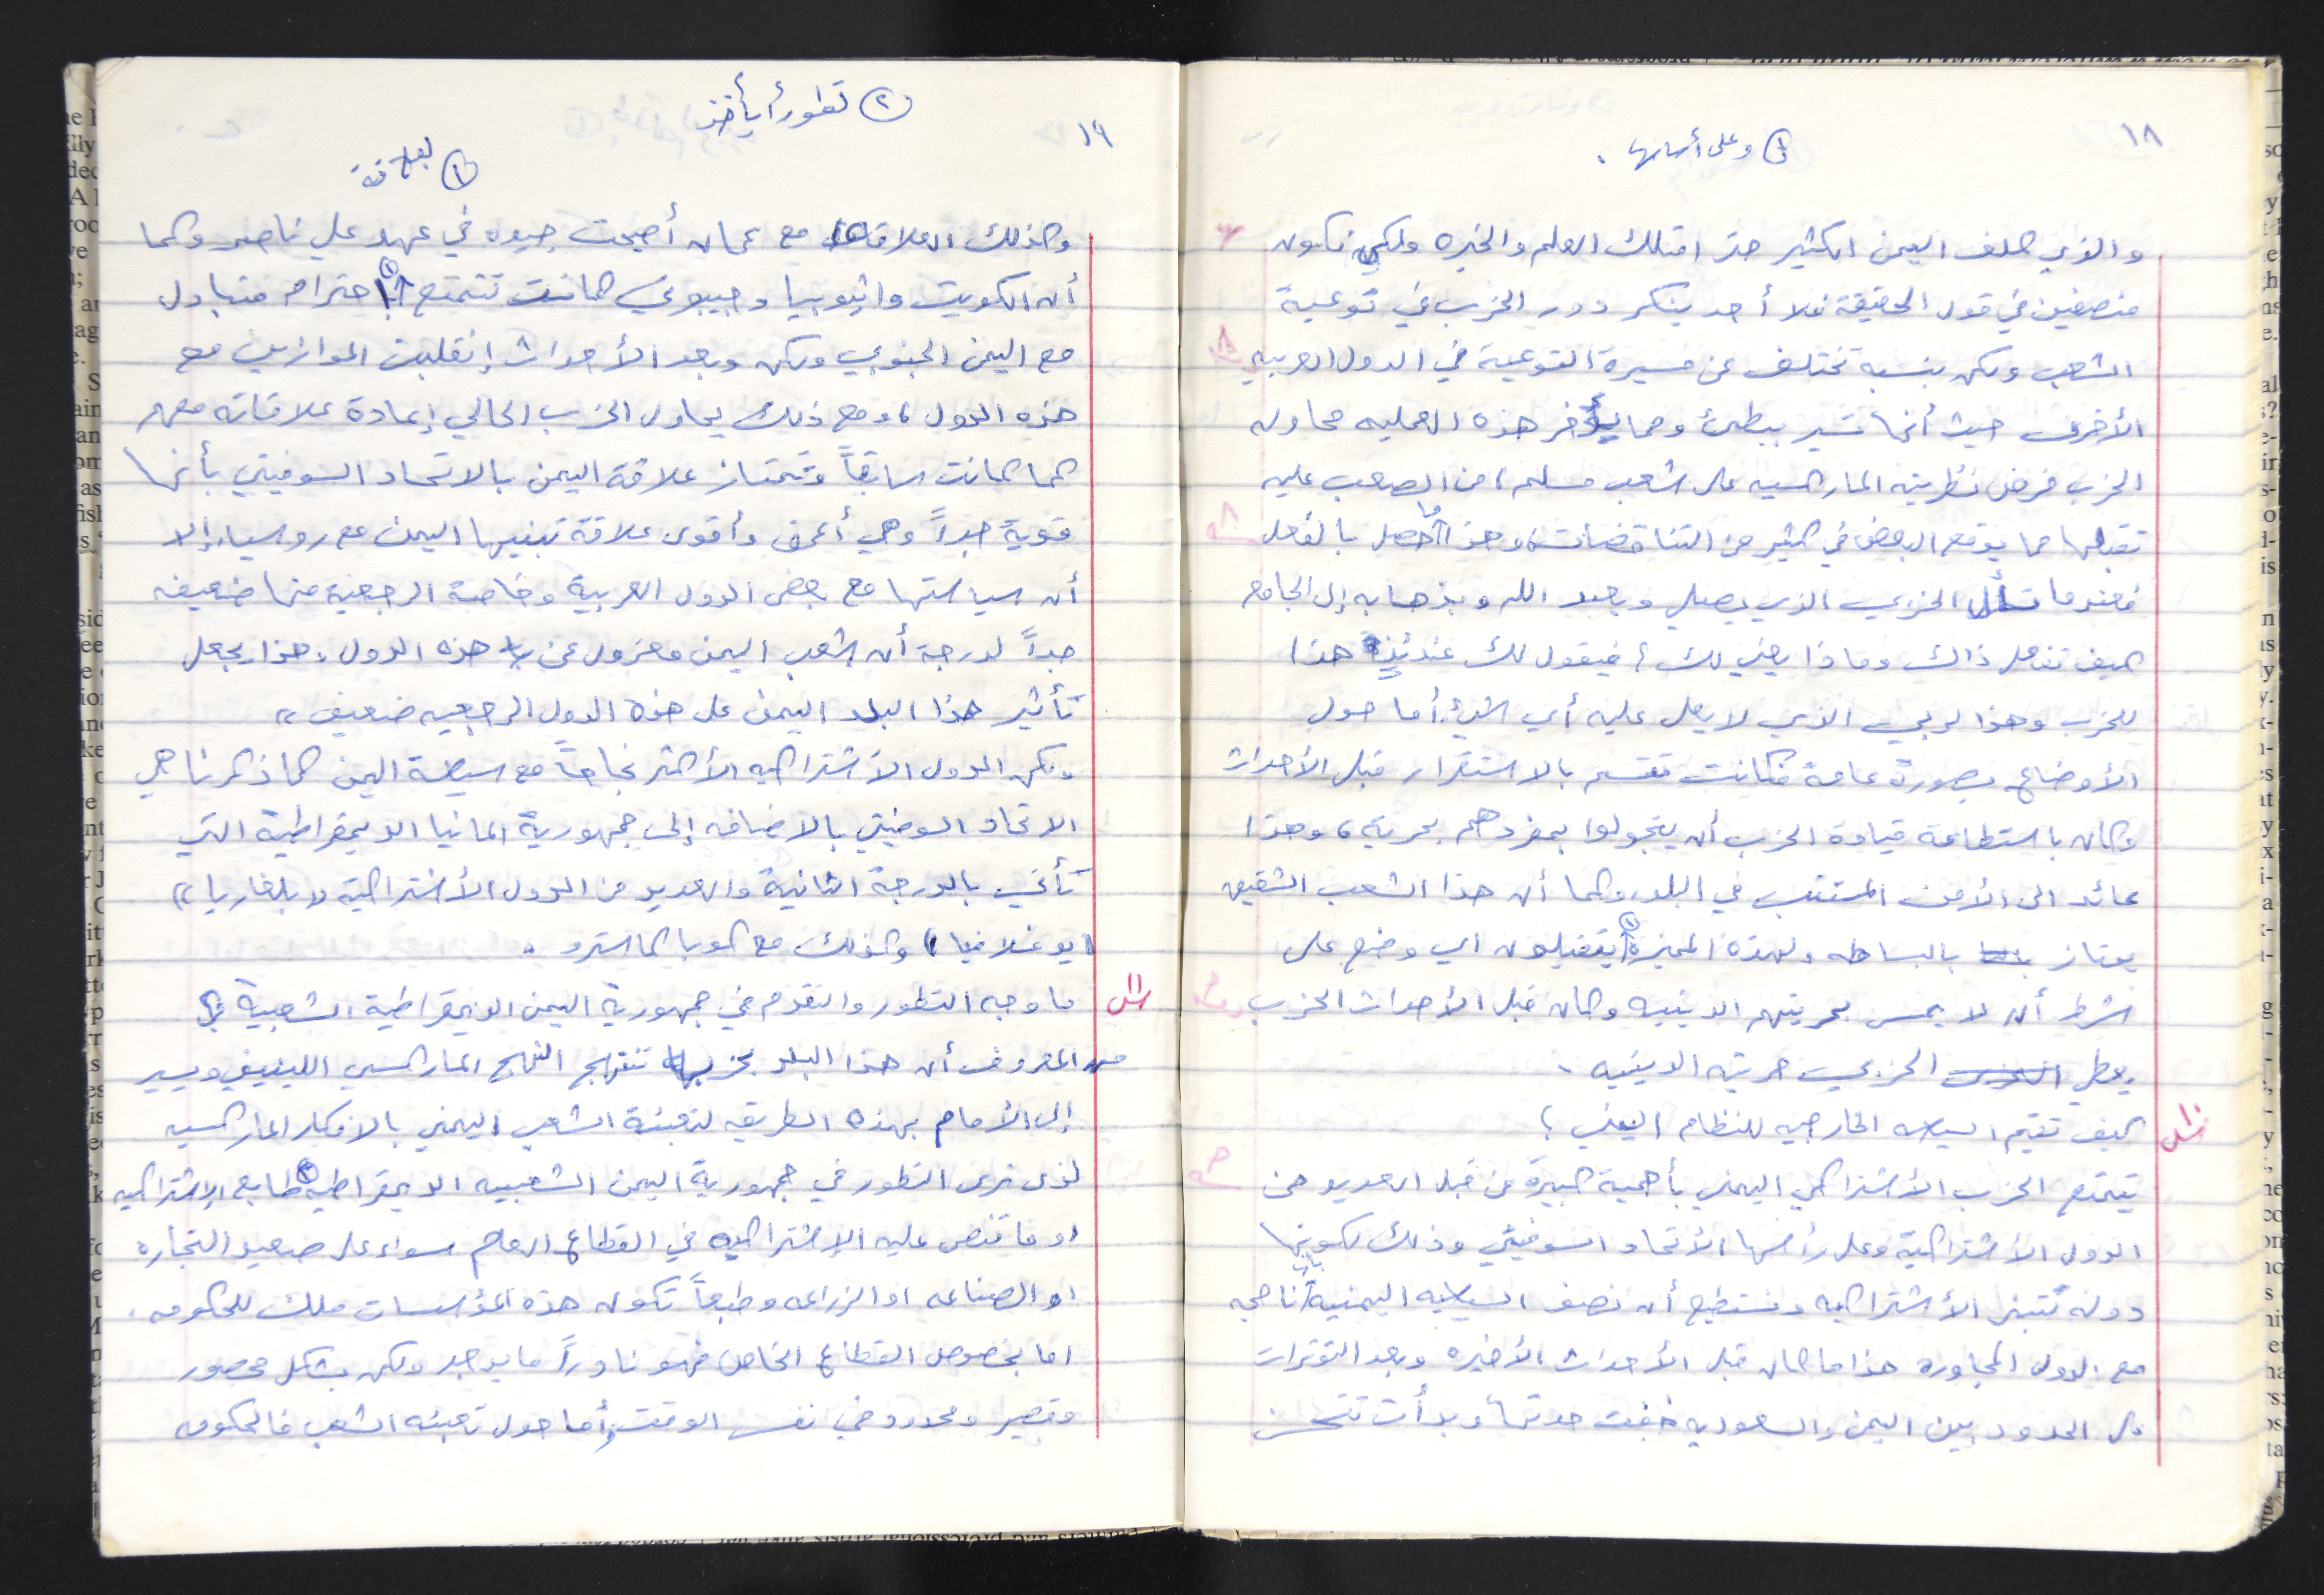 ١٨
① وعلى أساسها .
والذي كلف اليمن الكثير حتى امتلك العلم والخبره ولكي نكون
منصفين في قول الحقيقة فلا أحد ينكر دور الحزب في توعية
الشعب ولكن بنسبة تختلف عن مسيرة التوعية في الدول العربيه
الأخرى حيث أنها تسير ببطئ ومما يؤخر هذه العمليه محاوله
الحزب فرض نظريته الماركسيه على شعب مسلم ، من الصعب عليه
تقبلها مما يوقع البعض في كثير من التناقضات ، وهذا ما حصل بالفعل
فعندما تسأل الحزبي الذي يصلي ويعبد الله وبذهابه إلى الجامع
كيف تفعل ذاك وماذا يعني لك ؟ فيقول لك عندئذٍ هذا
للحزب وهذا لربي الذي لا يعلى عليه أي شيئ . أما حول
الأوضاع بصورة عامة فكانت تتسم بالاستقرار قبل الأحداث
وكان باستطاعة قيادة الحزب أن يتجولوا بمفردهم بحرية ، وهذا
عائد الى الأمن المستتب في البلد ، وكما أن هذا الشعب الشقيق
يمتاز بالبساطه ولهذه الميزة ① يتقبلون اي وضع على
شرط أن لا يمس بحريتهم الدينيه وكان قبل الأحداث الحزب
يعطي الحزبي حريته الدينيه .
س١٠ كيف تقيم السياسه الخارجيه للنظام اليمني ؟
يتمتع الحزب الأشتراكي اليمني بأهمية كبيرة من قبل العديد من
الدول الأشتراكية وعلى رأسها الأتحاد السوفيتي وذلك لكونها
دوله تتبنى الأشتراكيه ونستطيع أن نصف السياسيه اليمنية بأنها ناجحه
مع الدول المجاوره هذا ما كان قبل الأحداث الأخيره وبعد التوترات
على الحدود بين اليمن والسعوديه خفت حدتها وبدأت تتحسن
١٩
② تطوراً يأخذ
① بعلاقة
وكذلك العلاقات مع عمان أصبحت جيده في عهد علي ناصر وكما
أن الكويت واثيوبيا وجيبوتي كانت تتمتع ① باحترام متبادل
مع اليمن الجنوبي ولكن وبعد الأحداث إنقلبت الموازين مع
هذه الدول ، ومع ذلك يحاول الحزب الحالي إعادة علاقاته معهم
كما كانت سابقاً وتمتاز علاقة اليمن بالاتحاد السوفيتي بأنها
قوية جداً وهي أعمق وأقوى علاقة تبنيها اليمن مع روسيا ، إلا
أن سياستها مع بعض الدول العربية وخاصة الرجعية منها ضعيفه
جداً لدرجة أن شعب اليمن معزول عن هذه الدول ، هذا يجعل
تأثير هذا البلد اليمن على هذه الدول الرجعيه ضعيف ،،
ولكن الدول الأشتراكيه الأكثر نجاحاً مع سياسة اليمن كما ذكرنا هي
الاتحاد السوفيتي بالاضافه إلى جمهورية المانيا الديمقراطية التي
تأتي بالدرجة الثانية والعديد من الدول الأشتراكية « بلغاريا »
« يوغسلافيا » وكذلك مع كوبا كاسترو .
س١١ ما وجه التطور والتقدم في جمهورية اليمن الديمقراطية الشعبية ؟
من المعروف أن هذا البلد بحزبها تنتهج النهج الماركسي اللينيني ويسير
إلى الأمام بهذه الطريقه لتعبئة الشعب اليمني بالافكار الماركسيه
لذى نرى التطور في جمهورية اليمن الشعبيه الديمقراطيه ② طابع الإشتراكيه
او ما تنص عليه الإشتراكيه في القطاع العام سواء على صعيد التجاره
او الصناعه او الزراعه وطبعاً تكون هذه المؤسسات ملك للحكومه .
اما بخصوص القطاع الخاص فهو نادراً ما يوجد ولكن بشكل محصور
وقصير ومحدود في نفس الوقت ، أما حول تعبئه الشعب فالحكومه